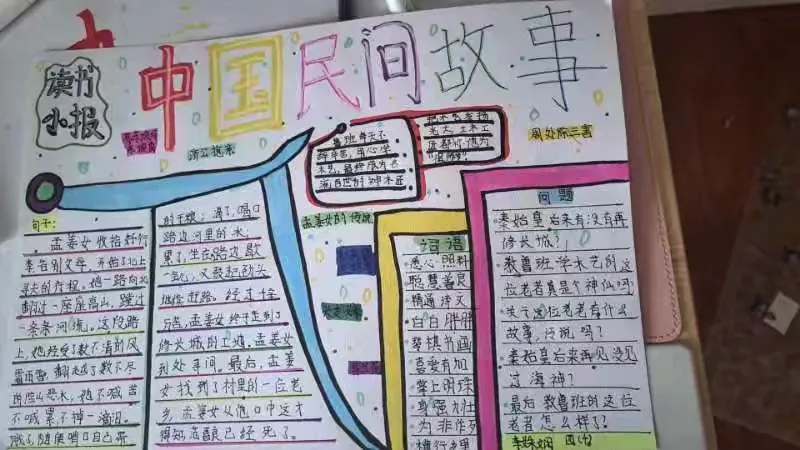 读书
小报
中国民间故事
济公造家
周处除三害
鲁班每天不
孟姜女的传说
句子：
孟姜女收拾好行
李告别父母，开始了北上
寻夫的行程，她一路向北
翻过一座座高山，蹚过
一条条河流。这段路
上，她经受了数不清的风
霜雨雪，翻越了数不尽
的穷山恶水，她不喊苦
不喊累，不掉一滴泪。
饿了，随便啃口自己带
的干粮；渴了，喝口
路边河里的水；
累了，坐在路边歇
一会，又鼓起劲头
继续赶路。经过千
辛，孟姜女终于走到了
修长城的工地，孟姜女
到处寻问。最后，孟姜
女找到了村里的一位老
乡，孟姜女从他口中这才
得知范喜良已经死了。
词语
悉心 照料
聪慧善良
精通诗文
白白胖胖
琴棋书画
喜爱有加
掌上明珠
身强力壮
为非作歹
横行乡里
问题
秦始皇后来有没有再
修长城？
教鲁班学木艺的这
位老者真是个神仙吗？
关于这位老者有什么
故事，传说吗？
秦始皇后来再见没见
过海神？
最后教鲁班的这位
老者怎么样了？